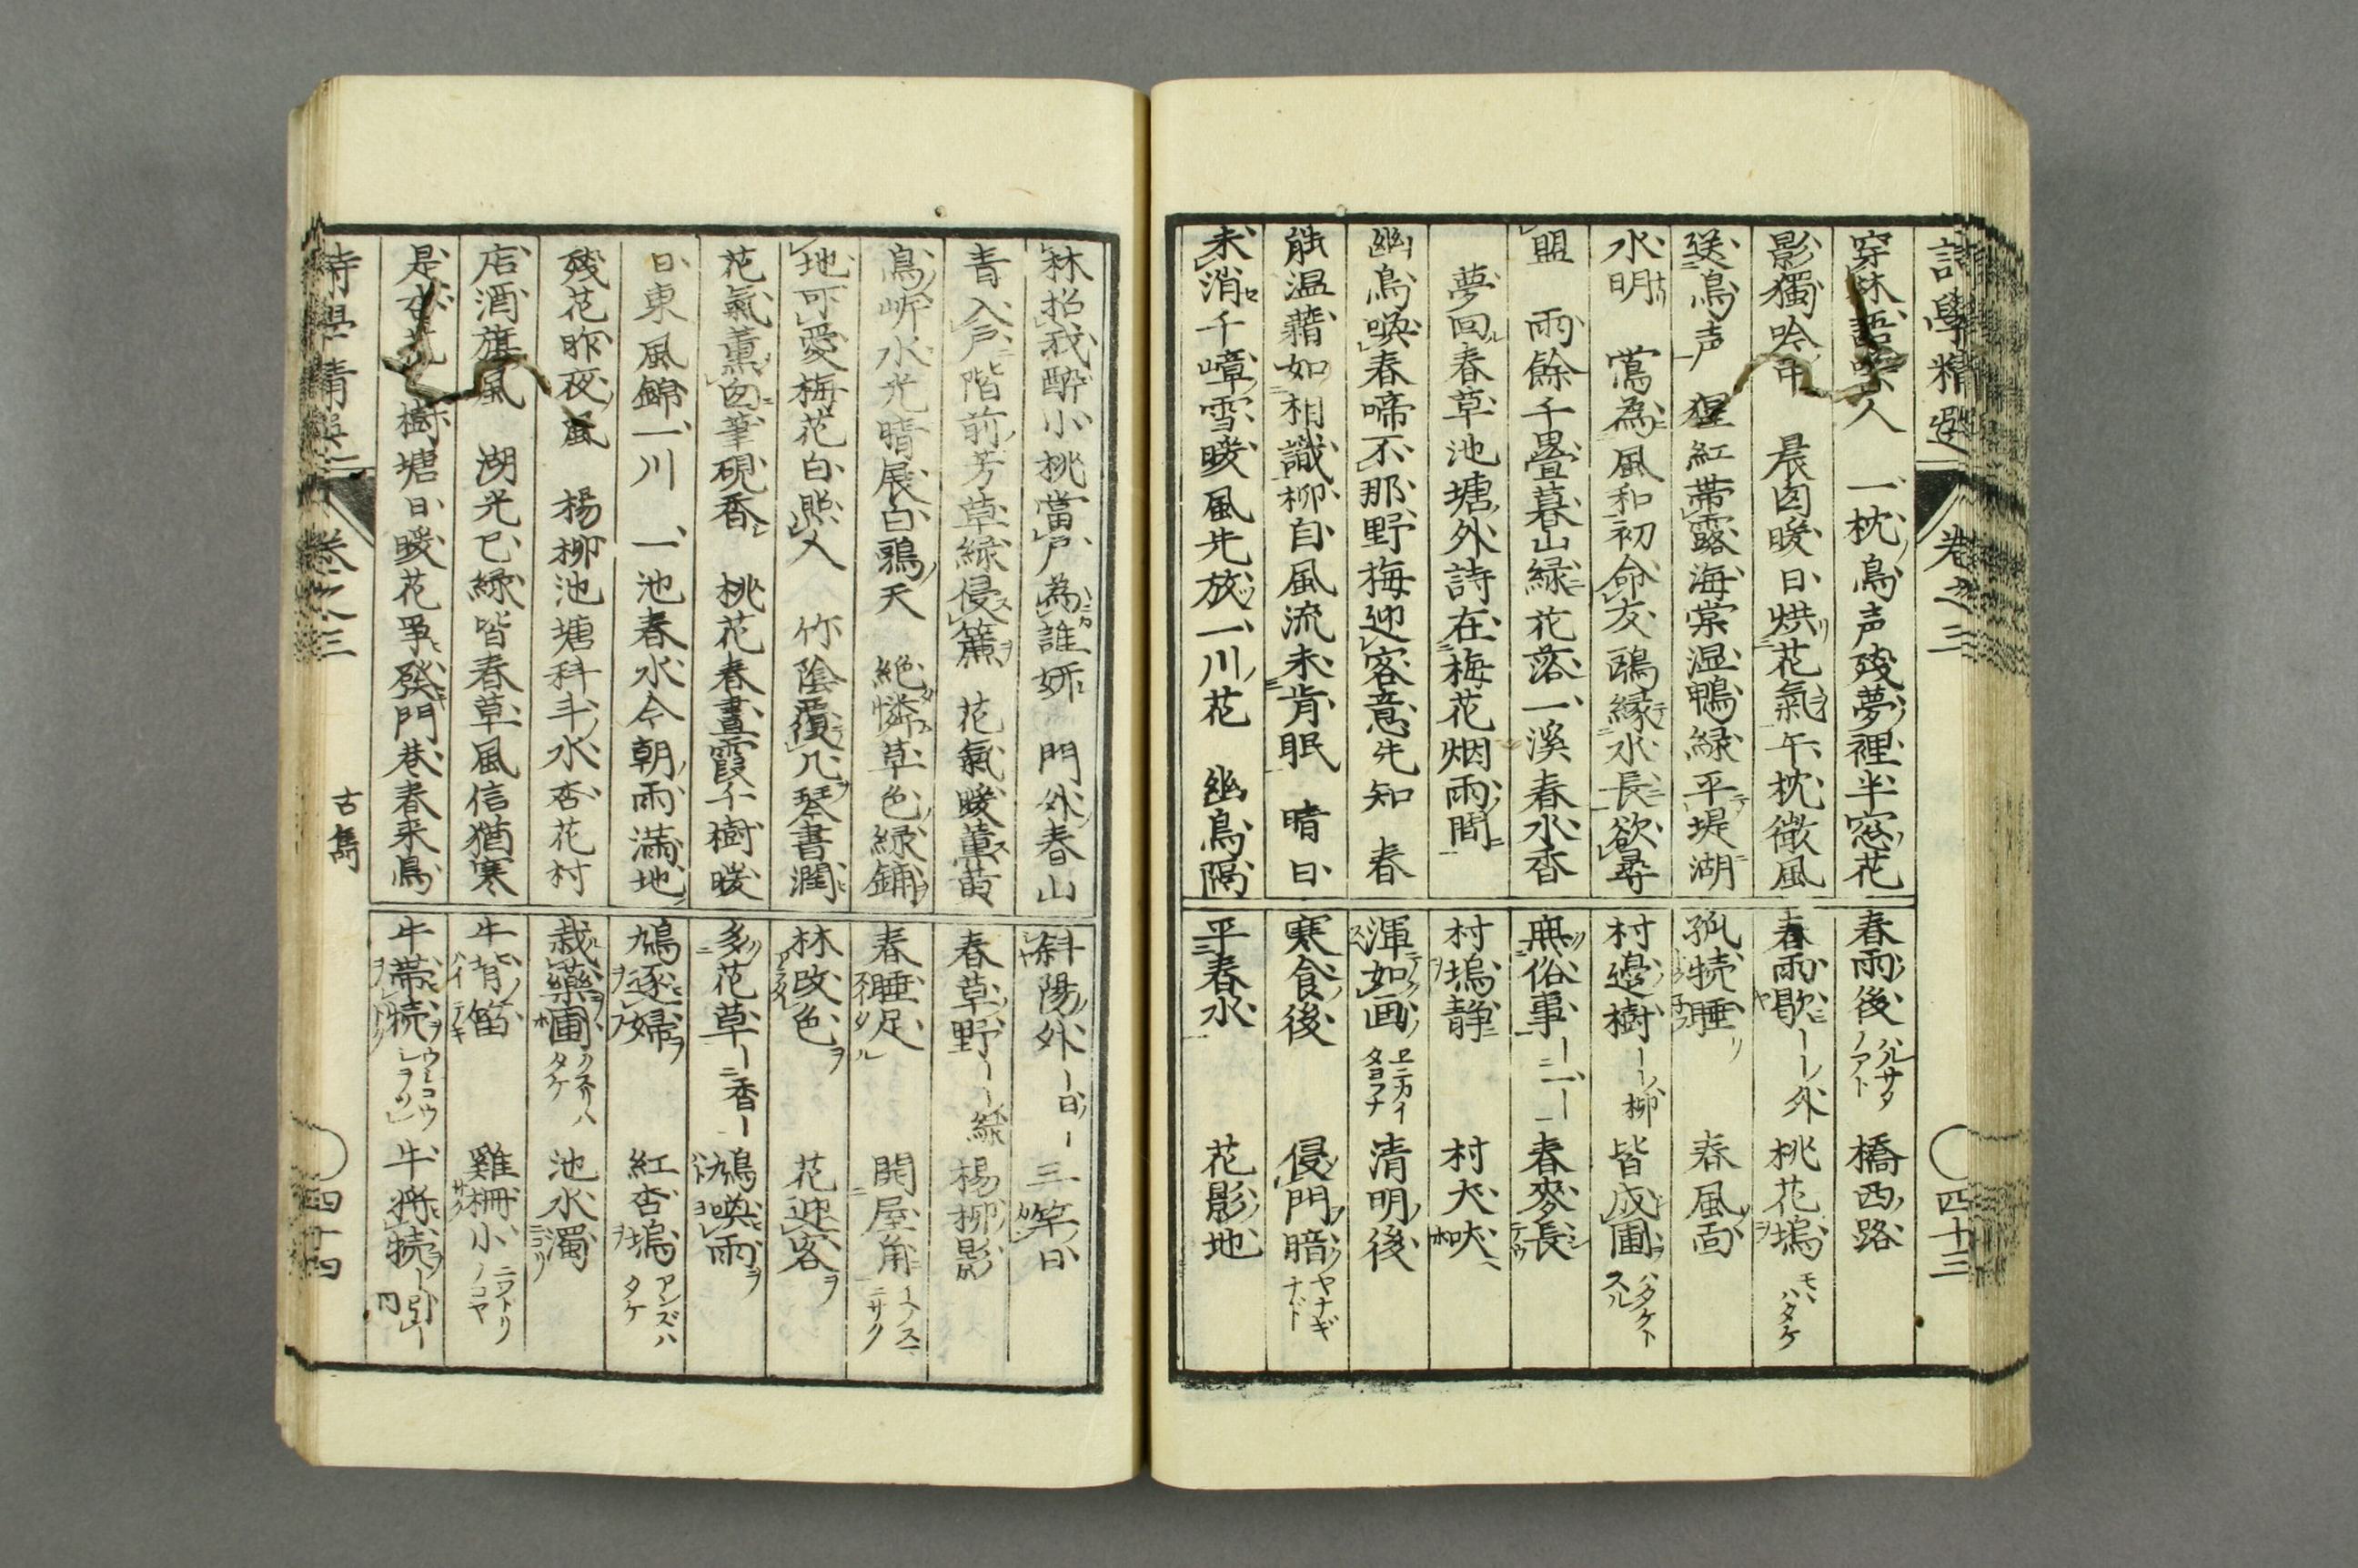 詩學精選 卷之三 四十三
穿林語喚人 一枕鳥声残夢裡半窓花
影獨吟中 晨囱暖日烘花氣午枕微風
送鳥声 猩紅帯露海棠湿鴨緑平堤湖
水明 鶯為風和初命友鷗縁水長欲尋
盟 雨餘千畳暮山緑花落一溪春水香
夢回春草池塘外詩在梅花烟雨間
幽鳥喚春啼不那野梅迎客意先知 春
能温藉如相識柳自風流未肯眠 晴日
未消千嶂雪暖風先放一川花 幽鳥隔
春雨後 ハルサメノアト 橋西路
春雨歇 ーー外 桃花塢 モヽハタケ
孤犢睡 春風面
村邊樹 ーー柳 皆成圃 ハタケトスル
無俗事 ー一ー 春麥長
村塢静 村犬吠
渾如画 ヱニカイタヨフナ 清明後
寒食後 侵門暗 ヤナギナド
平春水 花影地
林招我酔小桃當戸為誰妍 門外春山
青入戸階前芳草緑侵簾 花氣暖薫黄
鳥㘭水光晴展白鷗天 絶憐草色緑鋪
地可愛梅花白照人 竹陰覆几琴書潤
花氣薫囱筆硯香 桃花春晝霞千樹暖
日東風錦一川 一池春水今朝雨満地
残花昨夜風 楊柳池塘科斗水杏花村
店酒旗風 湖光已緑皆春草風信猶寒
是杏花 樹塘日暖花爭發門巷春来鳥
斜陽外 ー日ー 三竿日
春草野 ーー緑 楊柳影
春睡足 開屋角 ーノスミニサク
林改色 花迎客
多花草 ー香ー 鳩喚雨
鳩逐婦 紅杏塢 アンズハタケ
栽藥圃 クスリハタケ 池水濁
牛背笛 雞柵小 ニワトリノコヤ
牛帯犢 牛将犢 ー引ー
詩學精選 卷之三 古雋 四十四